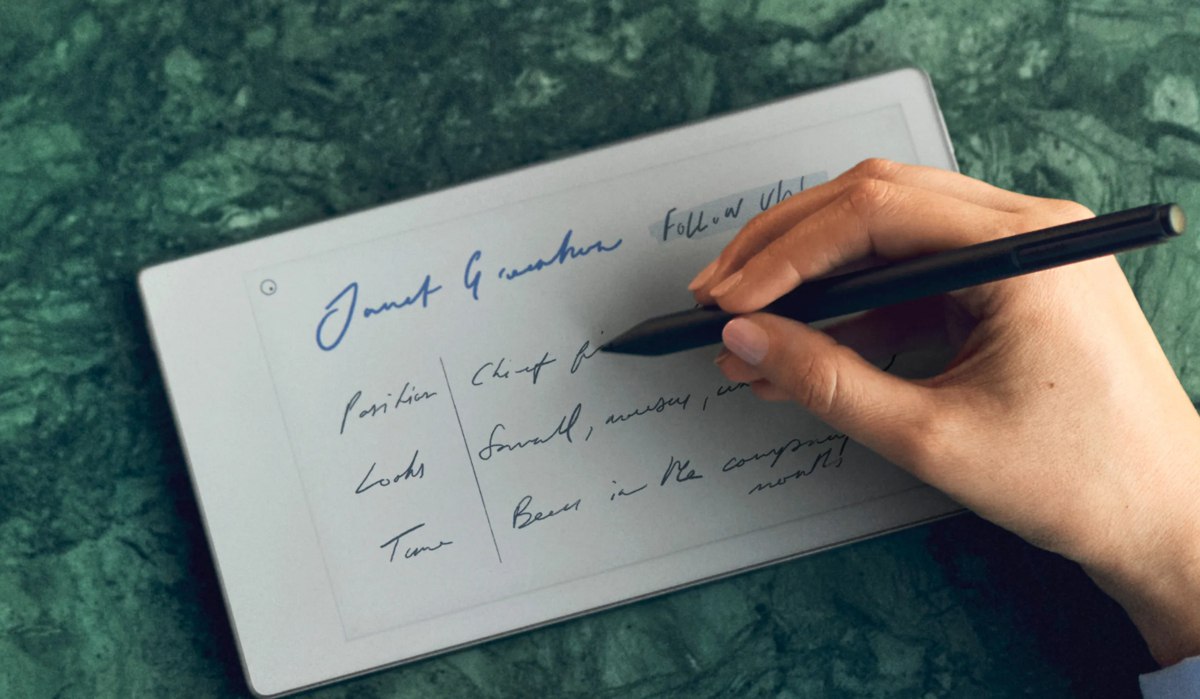 Janet
Follow Up!
Position Chief
Looks Small, mousy,
Time Been in the company
months!